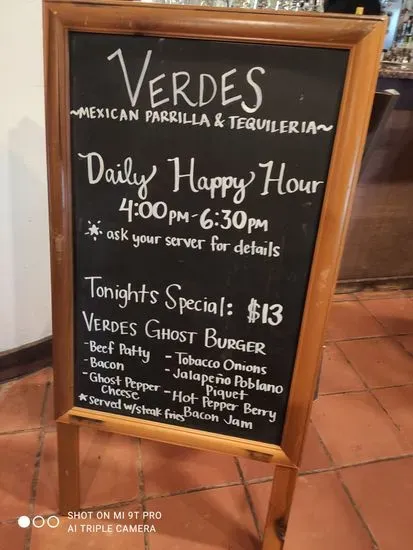 VERDES
~MEXICAN PARRILLA & TEQUILERIA~
Daily Happy Hour
4:00PM-6:30PM
* ask your server for details
Tonights Special: $13
VERDES GHOST BURGER
-Beef Patty
-Bacon
-Ghost Pepper
Cheese
*served w/steak fries
- Tobacco Onions
- Jalapeño Poblano
Piquet
- Hot Pepper Berry
Bacon Jam
SHOT ON MI 9T PRO
AI TRIPLE CAMERA